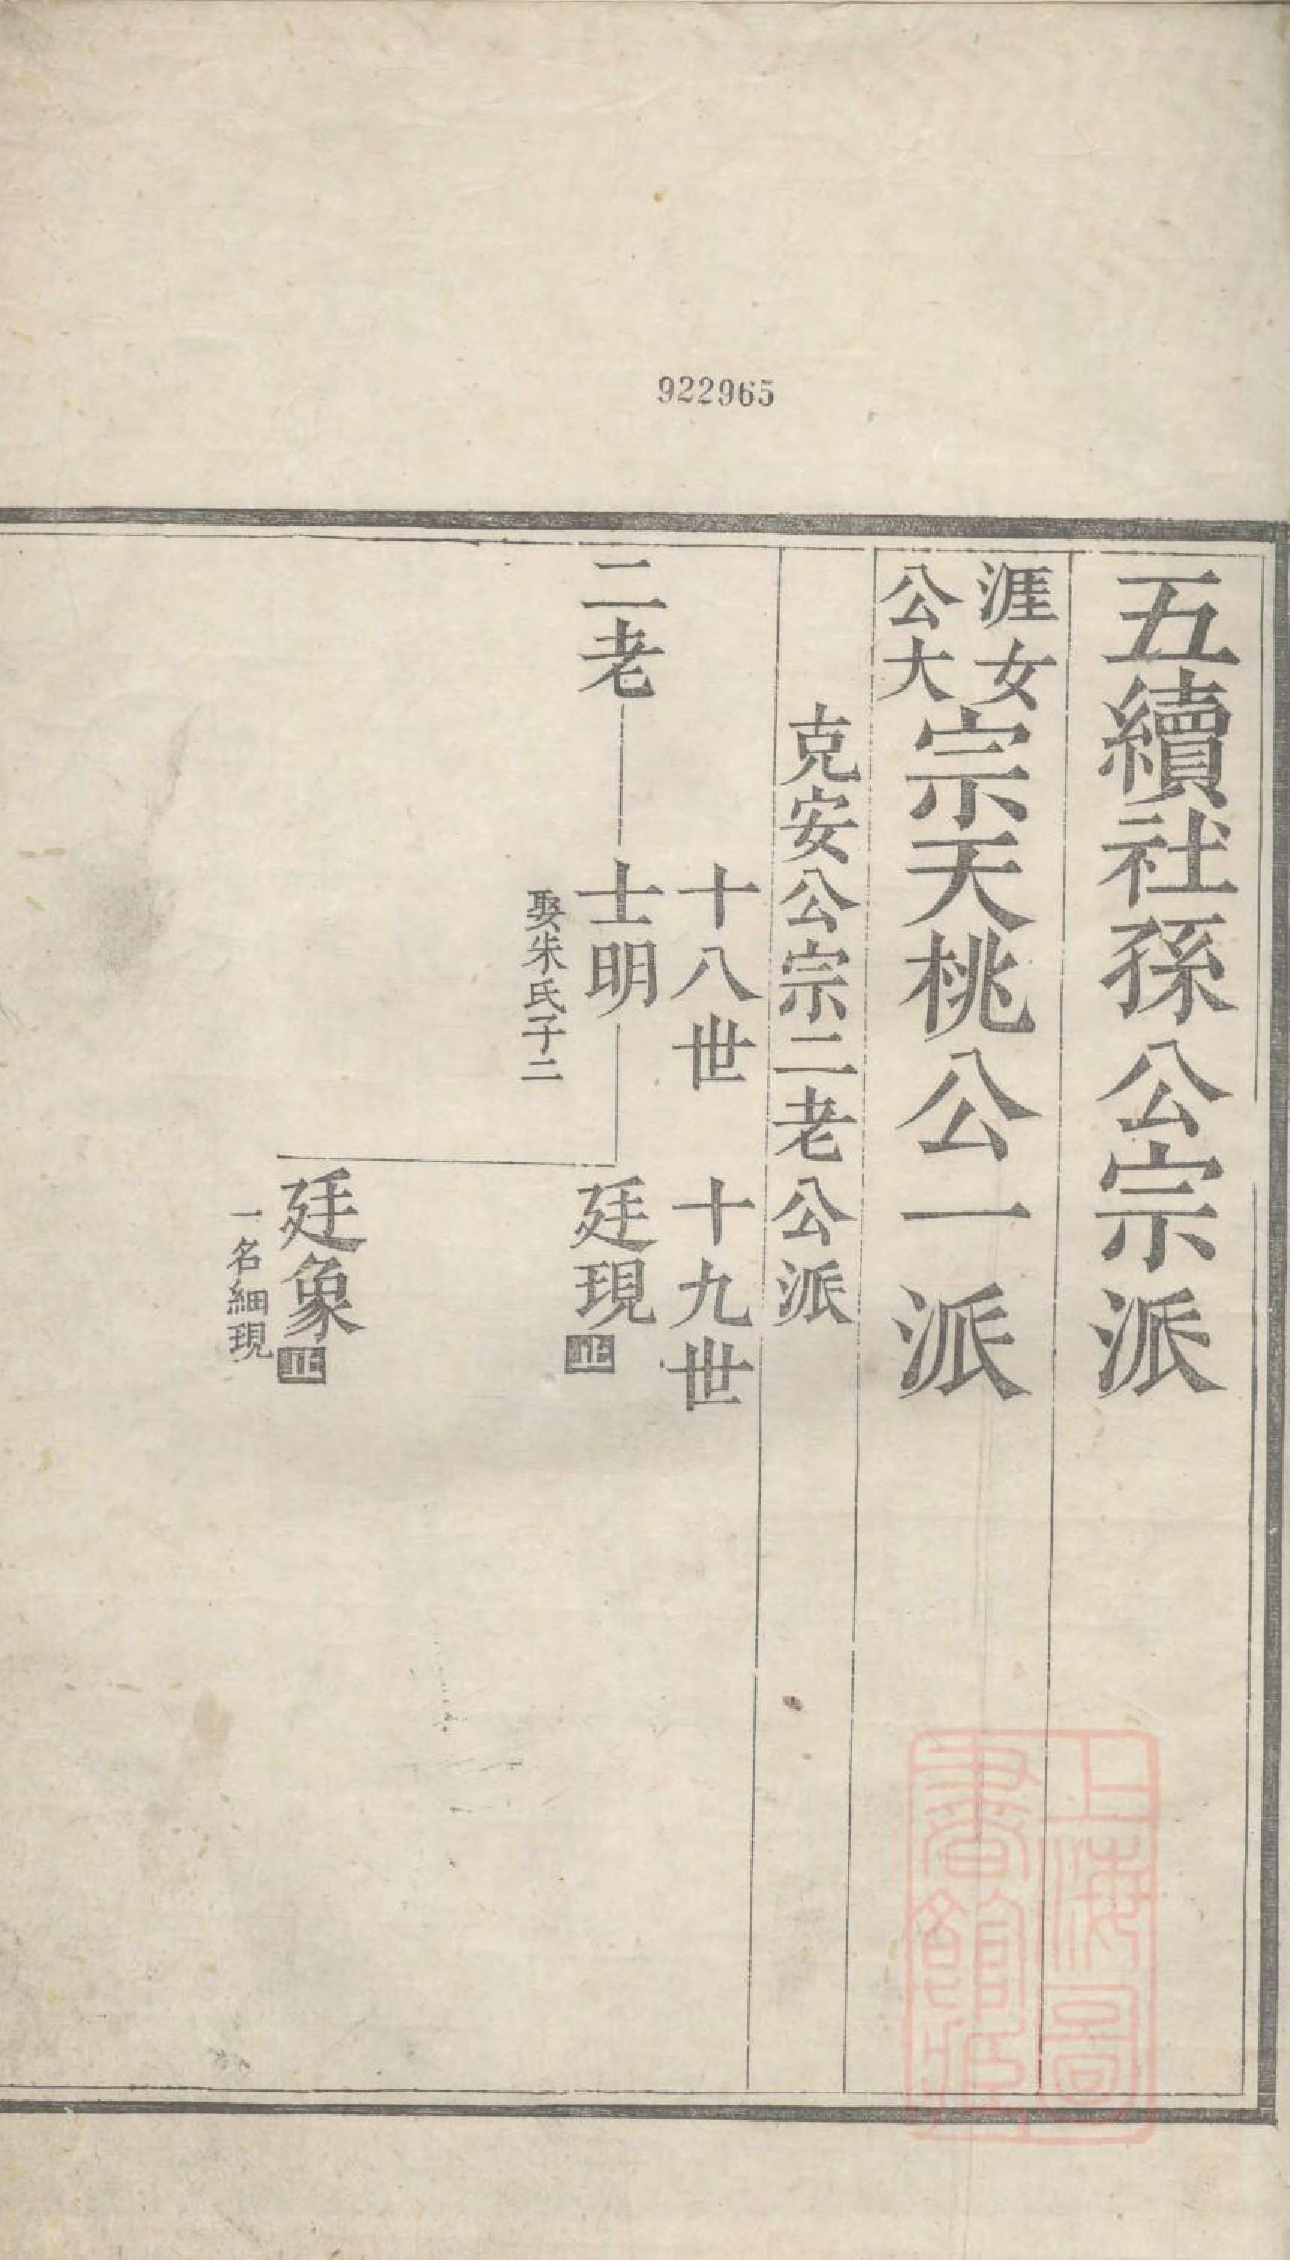 922965
五續社孫公宗派
涯女
公大
宗天桃公一派
克安公宗二老公派
十八世
十九世
二老
士明
廷現
止
娶朱氏子二
廷象
止
一名細現
上海圖
書館藏